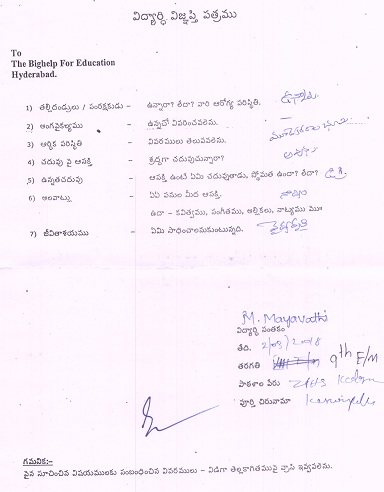 విద్యార్థి విజ్ఞప్తి పత్రము
To
The Bighelp For Education
Hyderabad.
1) తల్లిదండ్రులు / సంరక్షకుడు – ఉన్నారా? లేదా? వారి ఆరోగ్య పరిస్థితి.
2) అంగవైకల్యము – ఉన్నచో వివరించవలెను.
3) ఆర్థిక పరిస్థితి – వివరములు తెలుపవలెను.
4) చదువు పై ఆసక్తి – శ్రద్ధగా చదువుచున్నారా?
5) ఉన్నతచదువు – ఆసక్తి ఉంటే ఏమి చదువుతాడు, స్తోమత ఉందా? లేదా? డిగ్రీ
6) అలవాట్లు – ఏఏ పనుల మీద ఆసక్తి. నాట్యం
ఉదా – కవిత్వము, సంగీతము, అల్లికలు, నాట్యము మొ॥
7) జీవితాశయము – ఏమి సాధించాలనుకుంటున్నది.
M. Mayavathi
విద్యార్థి సంతకం
తేది.
తరగతి 9th E/M
పాఠశాల పేరు ZPHS
పూర్తి చిరునామా
గమనిక:-
పైన సూచించిన విషయములకు సంబంధించిన వివరములు – విడిగా తెల్లకాగితముపై వ్రాసి ఇవ్వవలెను.